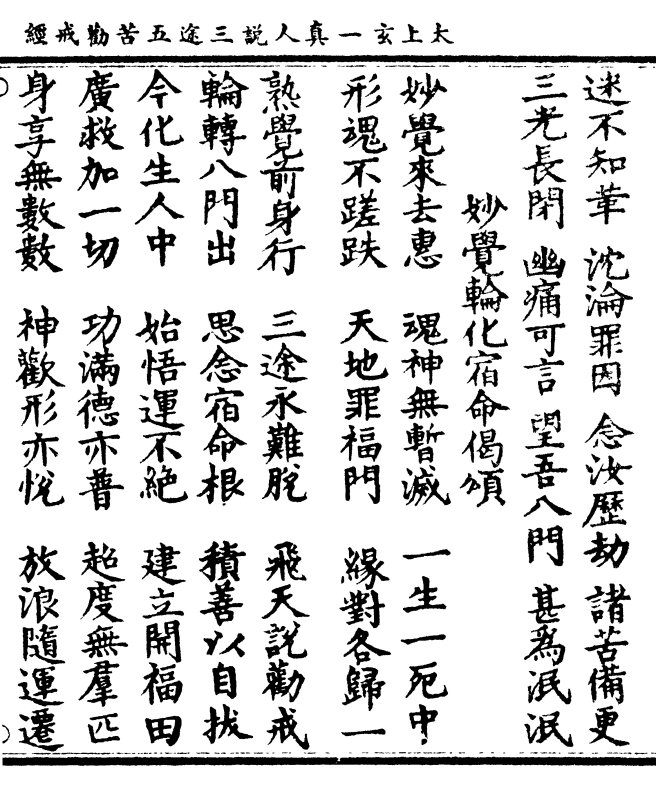 太上玄一真人說三途五苦勸戒經
迷不知革 沈淪罪因 念汝歷劫 諸苦備更
三光長閉 幽痛可言 望吾八門 甚為泯泯
妙覺輪化宿命偈頌
妙覺來去惠 魂神無暫滅 一生一死中
形魂不蹉跌 天地罪福門 緣對各歸一
熟覺前身行 三途永難脫 飛天說勸戒
輪轉八門出 思念宿命根 積善以自拔
今化生人中 始悟運不絕 建立開福田
廣救加一切 功滿德亦普 超度無羣匹
身享無數數 神歡形亦悅 放浪隨運遷